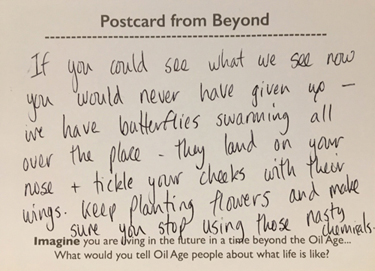 Postcard from Beyond
If you could see what we see now
you would never have given up -
we have butterflies swarming all
over the place - they land on your
nose + tickle your cheeks with their
wings. Keep planting flowers and make
sure you stop using those nasty
chemicals.
Imagine you are living in the future in a time beyond the Oil Age...
What would you tell Oil Age people about what life is like?